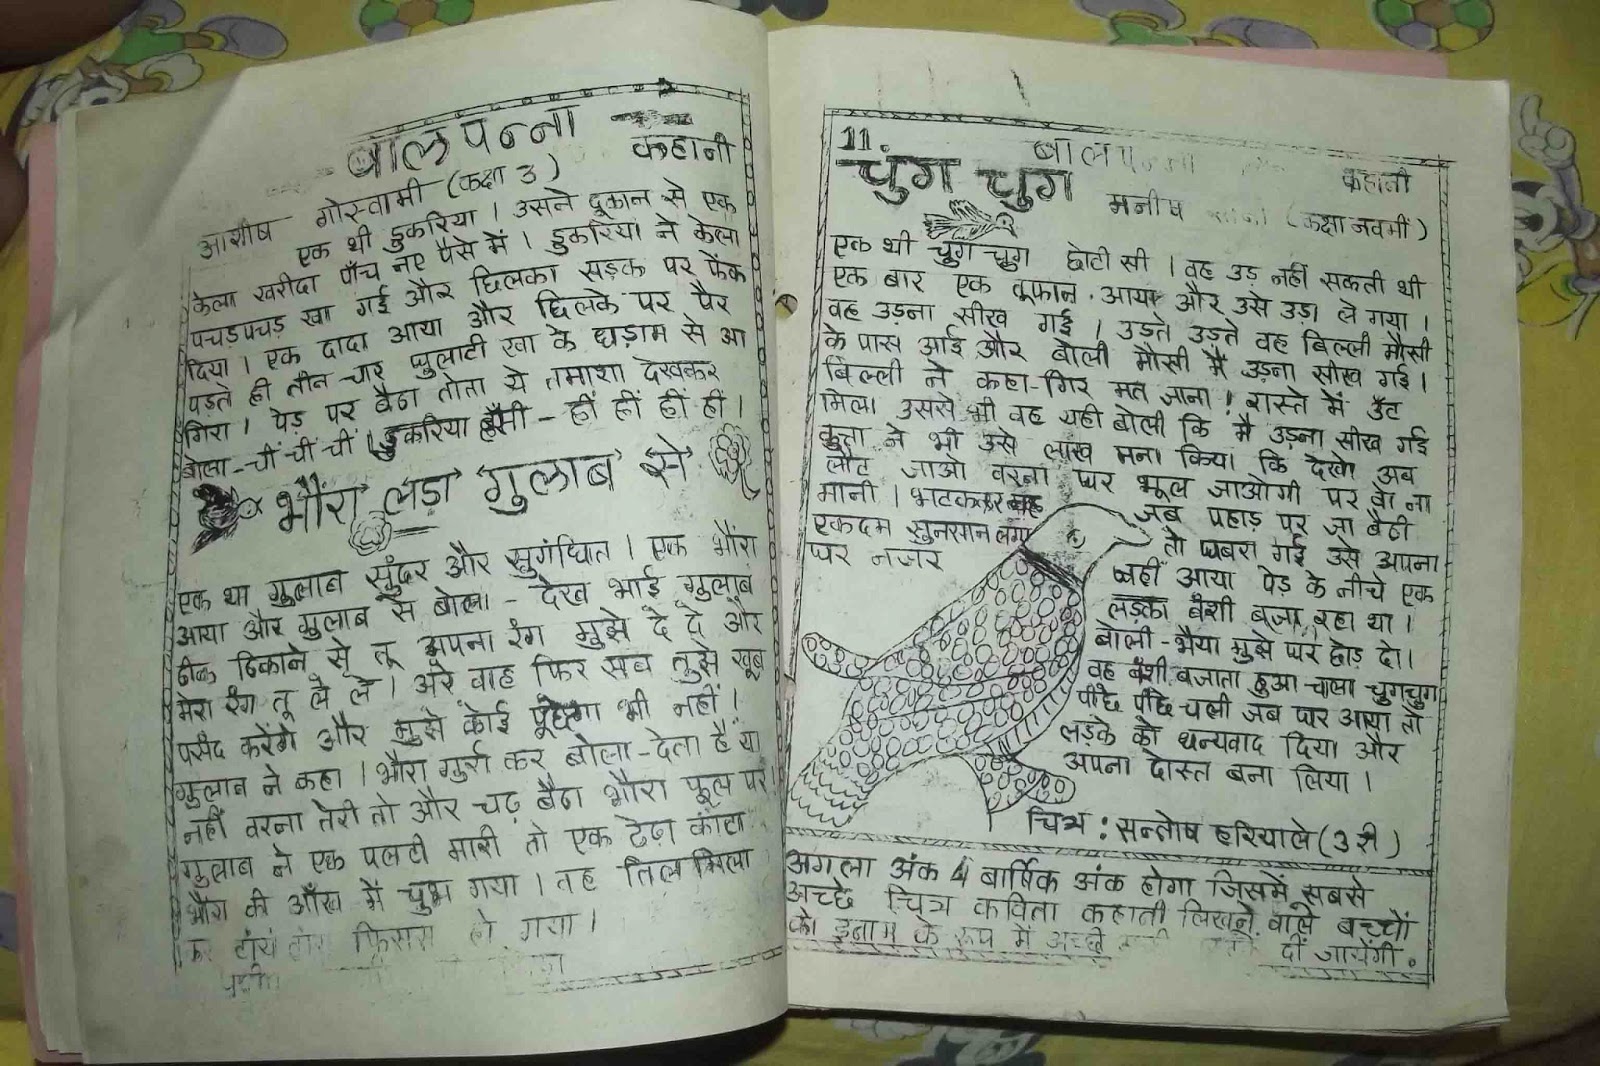 बालपन्ना
कहानी
आशीष गोस्वामी (कक्षा 3)
एक थी डुकरिया । उसने दूकान से एक
केला खरीदा पाँच नए पैसे में । डुकरिया ने केला
पचड़पचड़ खा गई और छिलका सड़क पर फेंक
दिया । एक दादा आया और छिलके पर पैर
पड़ते ही तीन चार घुलाटी खा के धड़ाम से आ
गिरा । पेड़ पर बैठा तोता ये तमाशा देखकर
बोला - चीं चीं चीं । डुकरिया हँसी - हीं हीं हीं ही ।
भौंरा लड़ा गुलाब से
एक था गुलाब सुंदर और सुगंधित । एक भौंरा
आया और गुलाब से बोला - देख भाई गुलाब
ठीक ठिकाने से तू अपना रंग मुझे दे दे और
मेरा रंग तू ले ले । अरे वाह फिर सब तुझे खूब
पसंद करेंगे और मुझे कोई पूछेगा भी नहीं ।
गुलाब ने कहा । भौंरा गुर्रा कर बोला - देता है या
नहीं वरना तेरी तो और चढ़ बैठा भौंरा फूल पर
गुलाब ने एक पलटी मारी तो एक टेढ़ा कांटा
भौंरा की आँख में चुभ गया । वह तिल मिला
कर फिसस हो गया ।
11
बालपन्ना
चुंग चुग
कहानी
मनीष (कक्षा नवमीं)
एक थी चुग चुग छोटी सी । वह उड़ नहीं सकती थी
एक बार एक तूफान आया और उसे उड़ा ले गया ।
वह उड़ना सीख गई । उड़ते उड़ते वह बिल्ली मौसी
के पास आई और बोली मौसी मैं उड़ना सीख गई ।
बिल्ली ने कहा - गिर मत जाना ! रास्ते में ऊँट
मिला उससे भी वह यही बोली कि मै उड़ना सीख गई
कुत्ता ने भी उसे लाख मना किया कि देखो अब
लौट जाओ वरना घर भूल जाओगी पर वो ना
मानी । भटककर वह जब पहाड़ पर जा बैठी
एकदम सुनसान लगा तो घबरा गई उसे अपना
घर नजर नहीं आया पेड़ के नीचे एक
लड़का बंशी बजा रहा था ।
बोली - भैया मुझे घर छोड़ दो ।
वह बंशी बजाता हुआ चला चुगचुग
पीछे पीछे चली जब घर आया तो
लड़के को धन्यवाद दिया और
अपना दोस्त बना लिया ।
चित्र : सन्तोष हरियाले (3 री)
अगला अंक 4 बार्षिक अंक होगा जिसमें सबसे
अच्छे चित्र कविता कहानी लिखने वाले बच्चों
को इनाम के रूप में अच्छी दी जायेंगी .